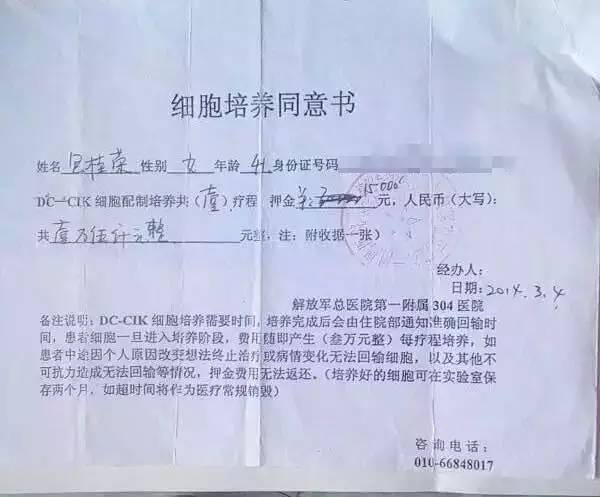 细胞培养同意书
姓名 桂荣 性别 女 年龄 身份证号码
DC-CIK 细胞配制培养共(壹)疗程 押金 15000 元,人民币(大写):
共壹万伍仟元整 元整,注:附收据一张)
经办人:
日期:2014.3.4
解放军总医院第一附属 304 医院
备注说明:DC-CIK 细胞培养需要时间,培养完成后会由住院部通知准确回输时
间,患者细胞一旦进入培养阶段,费用随即产生(叁万元整)每疗程培养,如
患者中途因个人原因改变想法终止治疗或病情变化无法回输细胞,以及其他不
可抗力造成无法回输等情况,押金费用无法返还。(培养好的细胞可在实验室保
存两个月,如超时间将作为医疗常规销毁)
咨询电话:
010-66848017